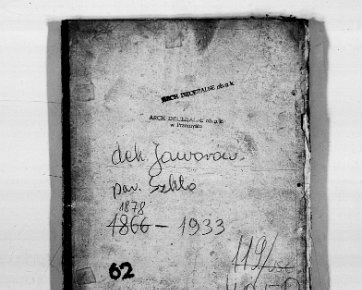 ARCH DIECEZALNE ob.g.k.
ARCH DIECEZALNE ob.g.k.
w Przemyślu
dek. Jaworów.
par. Szkło
1878
1866 - 1933
119/
62